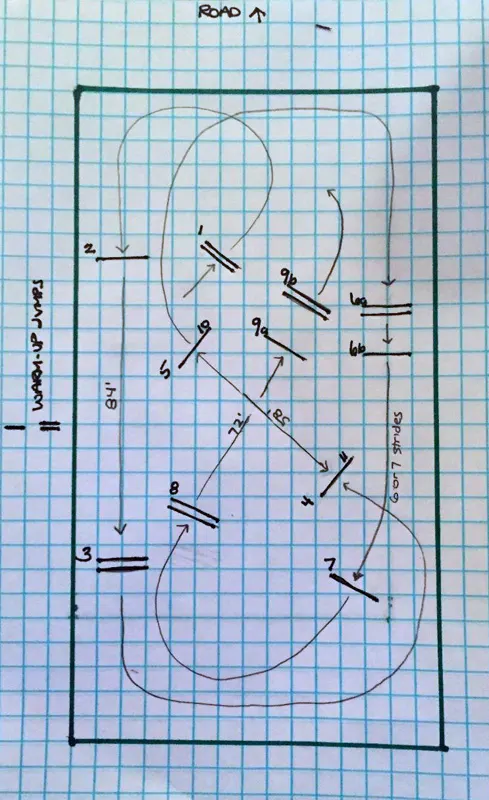 ROAD ↑
1
2
9b
6a
WARM-UP JUMPS
10
9a
6b
5
84'
72'
85'
6 or 7 strides
11
4
8
3
7